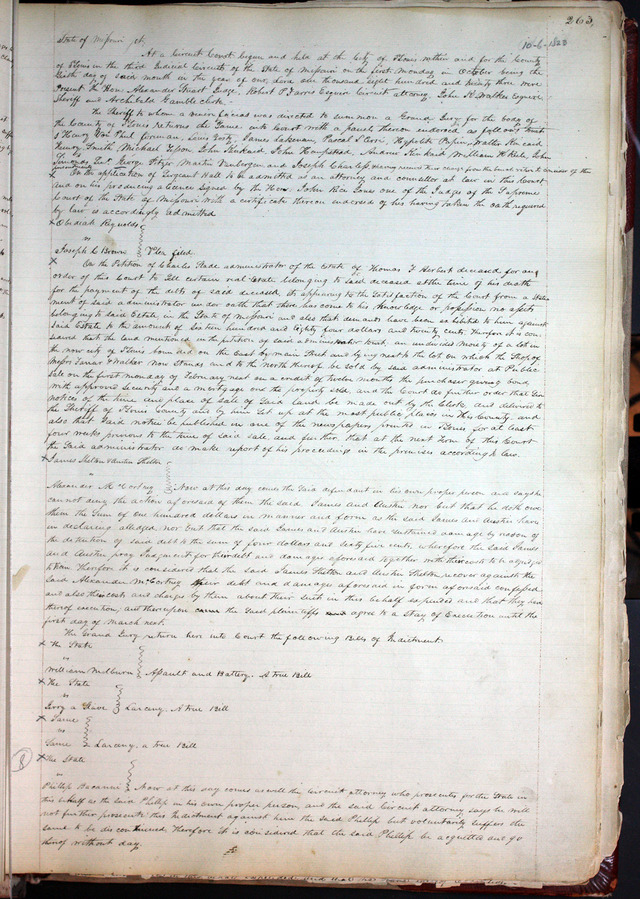 263,
10-6-1823
State of Missouri Sct.
At a Circuit Court begun and held at the City of St Louis within and for the County
of St Louis in the third Judicial Circuit of the State of Missouri on the first Monday in October being the
Sixth day of said month in the year of our Lord one thousand eight hundred and twenty three were
Present the Hon. Alexander Stuart Judge, Robert P Farris Esquire Circuit attorney, John K Walker Esquire
Sheriff and Archibald Gamble clerk.
The Sheriff to whom a venire facias was directed to summon a Grand Jury for the body of
the County of St Louis returns the same into Court with a panel thereon endorsed as follows
Henry Von Phul foreman, James Lakenan, Pascal Cerre, Hypolite Papin, Walter
Henry Smith, Michael John Shackford, John Thompson, William H John
George Martin and Joseph Charless having received their charge from the Court retire to consider of their
On the application of Sergeant Hall to be admitted as an attorney and counsellor at law in this Court
and on his producing a licence signed by the Hon. John Rice Jones one of the Judges of the Supreme
Court of the State of Missouri with a certificate thereon endorsed of his having taken the oath required
by law is accordingly admitted
x Obediah Reynolds
vs
Joseph C Brown } Plea filed
x On the Petition of Charles Wade administrator of the Estate of Thomas T Herbert deceased for an
order of this Court to sell certain real Estate belonging to said deceased at the time of his death
for the payment of the debts of said deceased, it appearing to the satisfaction of the Court from a state
ment of said administrator under oath that there has come to his knowledge or possession no assets
belonging to said Estate, in the State of Missouri and also that demands have been exhibited to him against
said Estate to the amount of Sixteen hundred and eighty four dollars and twenty cents. Therefore it is con
sidered that the land mentioned in the petition of said administrator to wit, an undivided moiety of a lot in
the now city of St Louis bounded on the East by main Street and lying next to the lot on which the Shop of
Messrs Walker now stands and to the north thereof be sold by said administrator at Public
sale on the first monday of February next on a credit of twelve months the purchaser giving bond
with approved security and a mortgage on the property sold, and the Court do further order that
notices of the time and place of sale of said land be made out by the clerk, and delivered to
the Sheriff of St Louis County and by him set up at the most public places in this County. and
also that said notice be published in one of the newspapers printed in St Louis for at least
four weeks previous to the time of said sale, and further that at the next term of this Court
the said administrator do make report of his proceedings in the premises according to law.
x James Shelton & Austin Shelton
vs
Alexander McCortney } Now at this day comes the said defendant in his own proper person and says he
cannot deny the action aforesaid of them the said James and Austin nor but that he doth owe
them the Sum of one hundred dollars in manner and form as the said James and Austin have
in declaring alledged, nor but that the said James and Austin have sustained damage by reason of
the detention of said debt to the sum of four dollars and sixty five cents, wherefore the said James
and Austin pray Judgment for their debt and damages aforesaid together with their costs to be adjudged
to them Therefore it is considered that the said James Shelton and Austin Shelton recover against the
said Alexander McCortney their debt and damages aforesaid in form aforesaid confessed
and also their costs and charges by them about their suit in this behalf expended and that they have
thereof execution; and thereupon came the said plaintiffs and agree to a Stay of Execution until the
first day of March next.
The Grand Jury return here into Court the following Bills of Indictment
x The State
vs
William Milburn } Assault and Battery. A true Bill
x The State
vs
Jerry a Slave } Larceny. A true Bill
x Same
vs
Same } Larceny, a true Bill
x The State
vs
Phillip } Now at this day comes as well the Circuit attorney who prosecutes for the State in
this behalf as the said Phillip in his own proper person, and the said Circuit attorney says he will
not further prosecute this Indictment against him the said Phillip but voluntarily suffers the
same to be discontinued, Therefore it is considered that the said Phillip be acquitted and go
thereof without day.